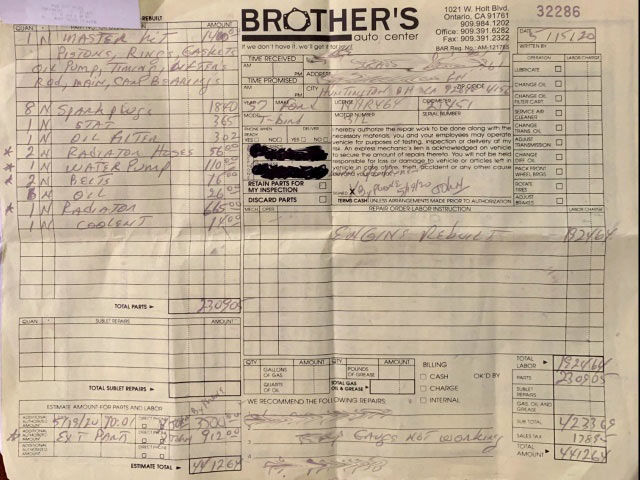 REBUILT
BROTHER'S
auto center
If we don't have it, we'll get it for
1021 W. Holt Blvd.
Ontario, CA 91761
Office: 909.984.1202
909.391.6282
Fax: 909.391.2322
BAR Reg. No. AM-121763
32286
DATE 5/15/20
WRITTEN BY
QUAN. AMOUNT
1 N MASTER KIT 1400.00
PISTONS, RINGS, GASKETS
OIL PUMP, TIMING, LIFTERS
ROD, MAIN, CAM BEARINGS
8 N Spark plugs 1840
1 N STAT 365
1 N OIL FILTER 302
* 2 N RADIATOR HOSES 5600
* 1 N WATER PUMP 11000
* 2 N BELTS
6 N OIL 2600
* 1 N RADIATOR
1 N COOLENT
TOTAL PARTS ► 230905
TIME RECEIVED
AM
PM
TIME PROMISED
AM
PM
ADDRESS
CITY HUNTINGTON BH CA
ZIP CODE
YEAR 57 MAKE Ford
MODEL T-bird
LICENSE
MOTOR NUMBER
ODOMETER
SERIAL NUMBER
PHONE WHEN READY
YES NO
DELIVER
YES NO
RETAIN PARTS FOR MY INSPECTION
DISCARD PARTS
I hereby authorize the repair work to be done along with the
necessary materials, and you and your employees may operate
vehicle for purposes of testing, inspection or delivery at my
risk. An express mechanic's lien is acknowledged on vehicle
to secure the amount of repairs thereto. You will not be held
responsible for loss or damage to vehicle or articles left in
vehicle in case of fire, theft, accident or any other cause
beyond your control.
SIGNED X By Phone
TERMS CASH UNLESS ARRANGEMENTS MADE PRIOR TO AUTHORIZATION
OPERATION LABOR CHARGE
LUBRICATE
CHANGE OIL
CHANGE OIL FILTER CART
SERVICE AIR CLEANER
CHANGE TRANS. OIL
ADJUST TRANSMISSION
CHANGE DIFF. OIL
PACK FRONT WHEEL BRGS
ROTATE TIRES
ADJUST BRAKES
MECH. OPER. REPAIR ORDER-LABOR INSTRUCTION LABOR CHARGE
ENGINE REBUILT 192464
QUAN. SUBLET REPAIRS AMOUNT
TOTAL SUBLET REPAIRS ►
QTY. AMOUNT QTY. AMOUNT
GALLONS OF GAS
POUNDS OF GREASE
QUARTS OF OIL
TOTAL GAS OIL & GREASE ►
BILLING
CASH
CHARGE
INTERNAL
OK'D BY
TOTAL LABOR ► 192464
PARTS 230905
SUBLET REPAIRS
GAS, OIL AND GREASE
SUB TOTAL 423369
SALES TAX 17895
TOTAL AMOUNT ► 441264
ESTIMATE AMOUNT FOR PARTS AND LABOR
5/19/20 10:01 350000
* EXT PART 91200
ESTIMATE TOTAL ► 441264
WE RECOMMEND THE FOLLOWING REPAIRS:
Temp Gauge NOT working